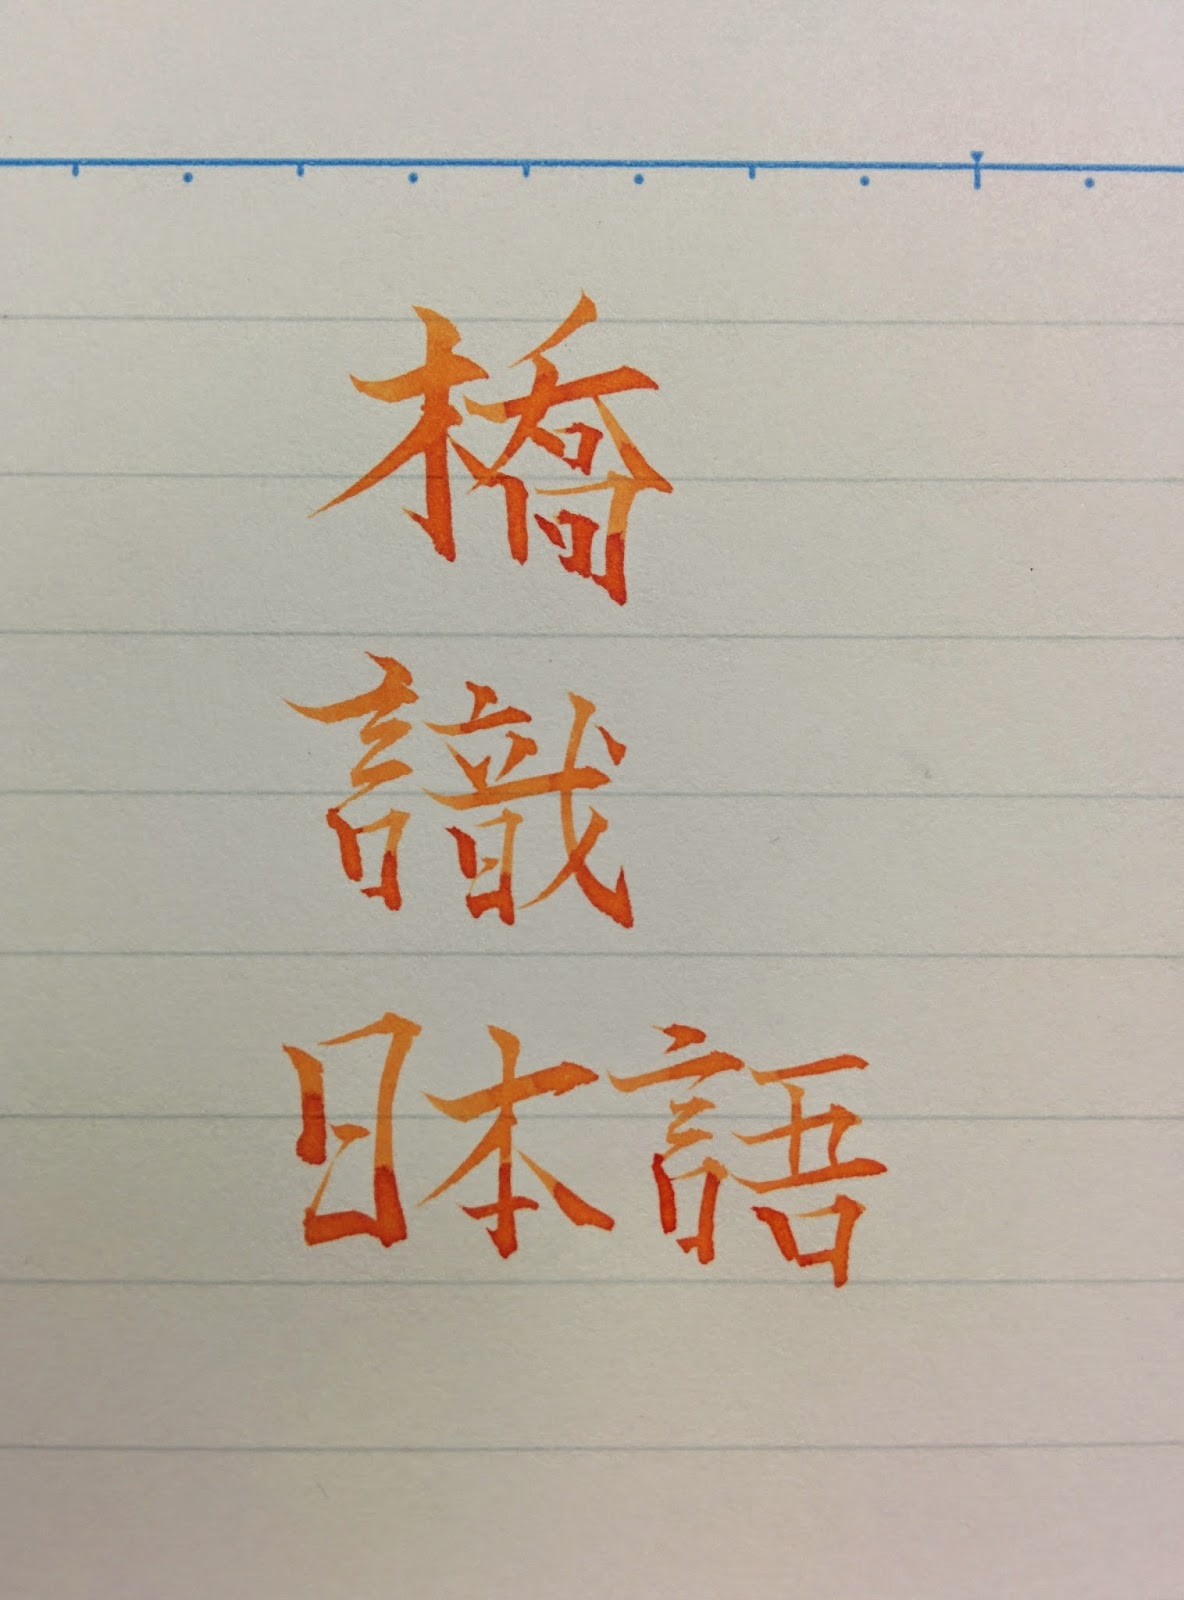 橋
識
日本語